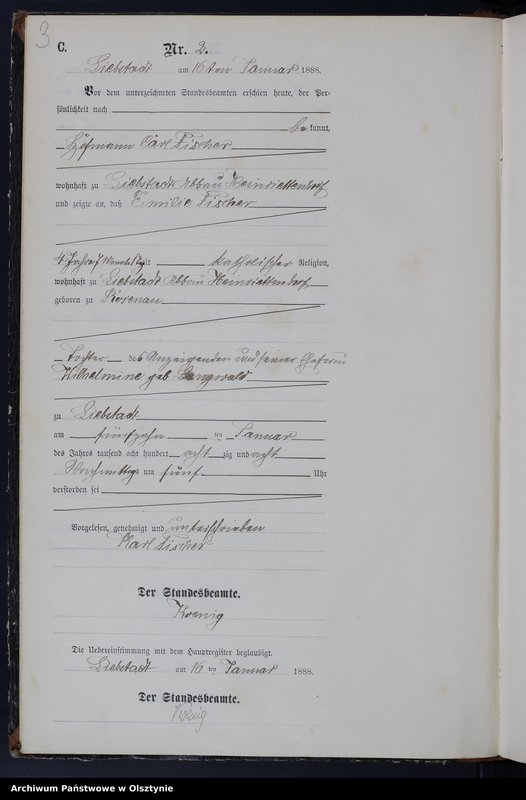 3
C.
Nr. 2.
Liebstadt am 16ten Januar 1888.
Vor dem unterzeichneten Standesbeamten erschien heute, der Per-
sönlichkeit nach
bekannt,
Hofmann Carl Fischer
wohnhaft zu Liebstadt Abbau Heinriettendorf
und zeigte an, daß Emilie Fischer
4 Jahre 7 Monate alt katholischer Religion,
wohnhaft zu Liebstadt Abbau Heinriettendorf
geboren zu Rosenau
Tochter des Anzeigenden und seiner Ehefrau
Wilhelmine geb
zu Liebstadt
am fünfzehn ten Januar
des Jahres tausend acht hundert acht zig und acht
Nachmittags um fünf Uhr
verstorben sei
Vorgelesen, genehmigt und unterschrieben
Karl Fischer
Der Standesbeamte.
Koenig
Die Uebereinstimmung mit dem Hauptregister beglaubigt.
Liebstadt am 16 ten Januar 1888.
Der Standesbeamte.
Koenig
Archiwum Państwowe w Olsztynie